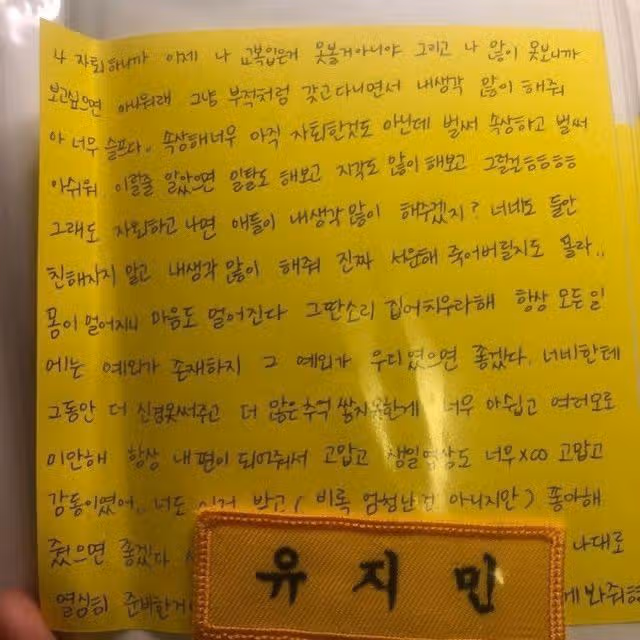 나 자퇴하니까 이제 나 교복입은거 못볼거아니야 그리고 나 많이 못보니까
보고싶으면 아쉬워래 그냥 부적처럼 갖고다니면서 내생각 많이 해줘
아 너무 슬프다.. 속상해너무 아직 자퇴한것도 아닌데 벌써 속상하고 벌써
아쉬워. 이럴줄 알았으면 일탈도 해보고 지각도 많이 해보고 그럴걸ㅎㅎㅎㅎ
그래도 자퇴하고 나면 애들이 내생각많이 해주겠지? 너네도 둘만
친해지지 말고 내생각 많이 해줘 진짜 서운해 죽어버릴지도 몰라..
몸이 멀어지니 마음도 멀어진다 그딴소리 집어치우라해 항상 모든일
에는 예외가 존재하지 그 예외가 우리였으면 좋겠다. 너네한테
그동안 더 신경못써주고 더 많은추억 쌓지못한게 너무 아쉽고 여러모로
미안해 항상 내편이 되어줘서 고맙고 생일영상도 너무xoo 고맙고
감동이였어.. 너도 이거 받고( 비록 엄청난건 아니지만) 좋아해
줬으면 좋겠다 나대로
열심히 준비한거 게봐줘
유지민